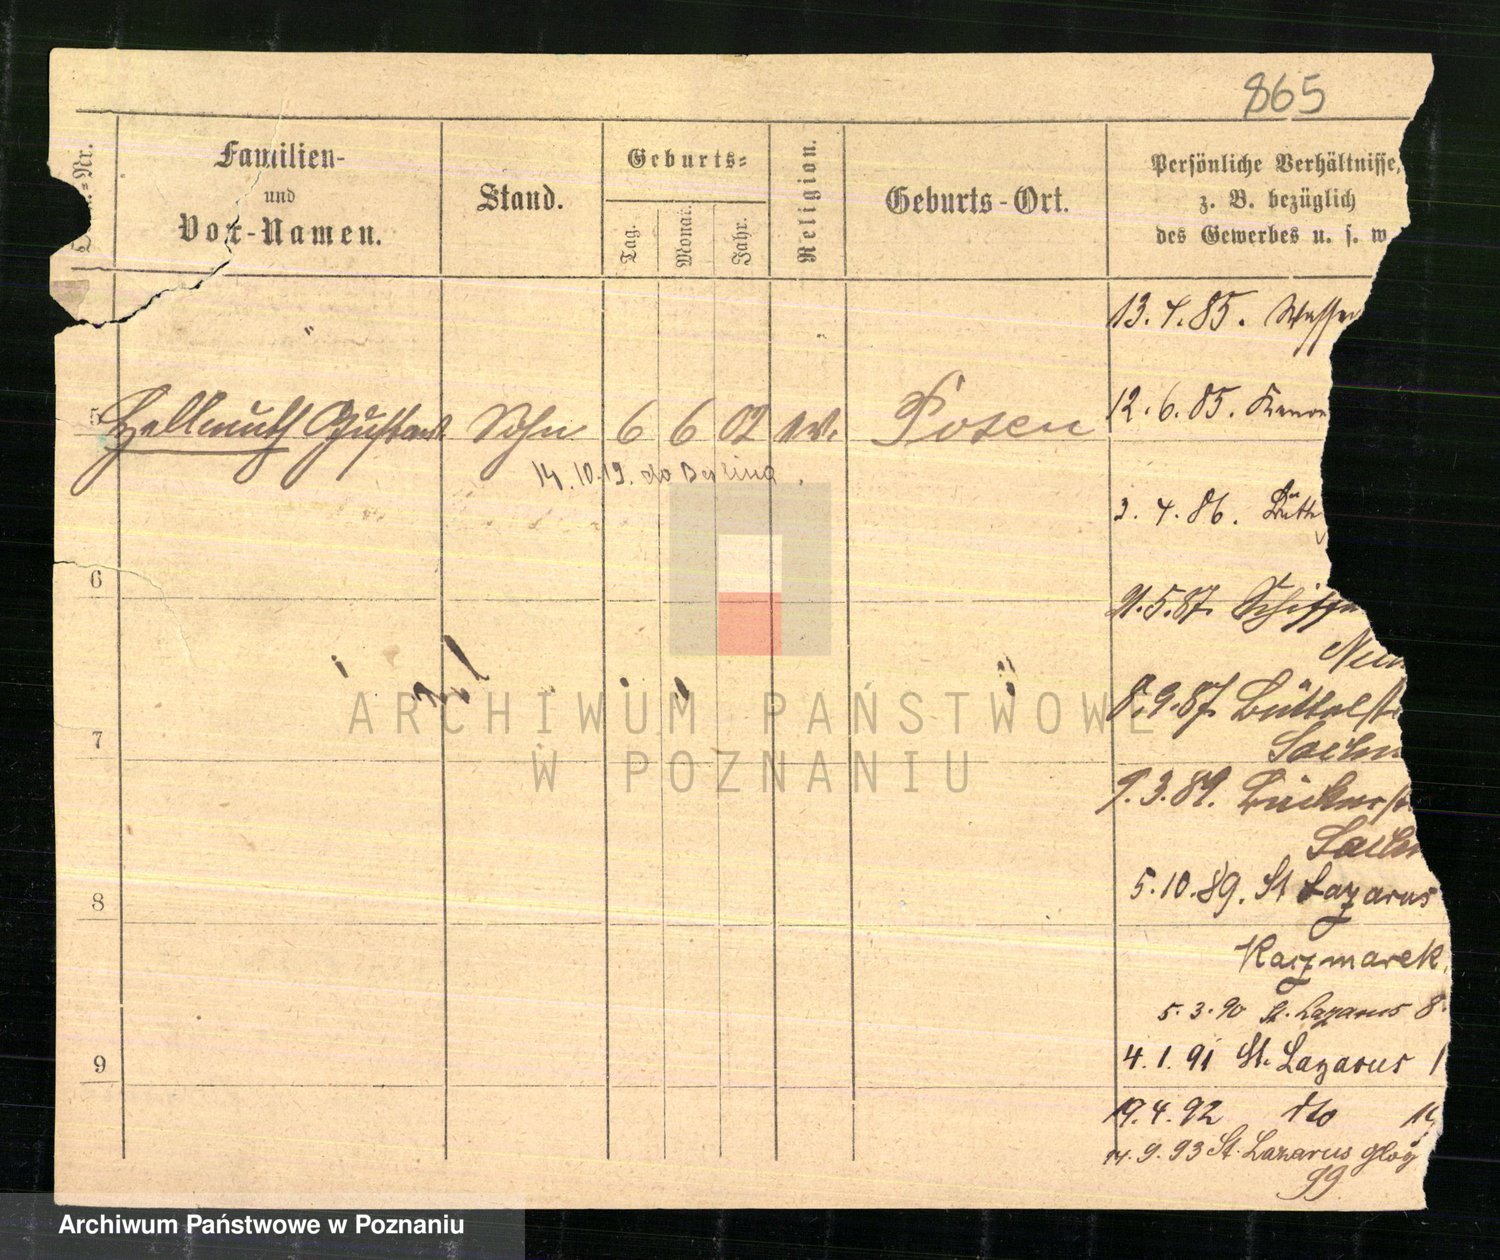 865
Nr.
Familien-
und
Vor-Namen.
Stand.
Geburts-
Tag.
Monat.
Jahr.
Religion.
Geburts-Ort.
Persönliche Verhältnisse,
z. B. bezüglich
des Gewerbes u. s. w
13.4.85.
5 Hellmuth Gustav Sohn 6 6 02 ev. Posen
12.6.85.
14.10.19. do Berlina.
3.4.86.
6
21.5.87.
8.9.87.
7
9.3.89.
5.10.89. St Lazarus
8
Kaczmarek
5.3.90 St. Lazarus 8
4.1.91 St. Lazarus 1
9
19.4.92 dto
14.9.93 St. Lazarus
99
ARCHIWUM PAŃSTWOWE
W POZNANIU
Archiwum Państwowe w Poznaniu